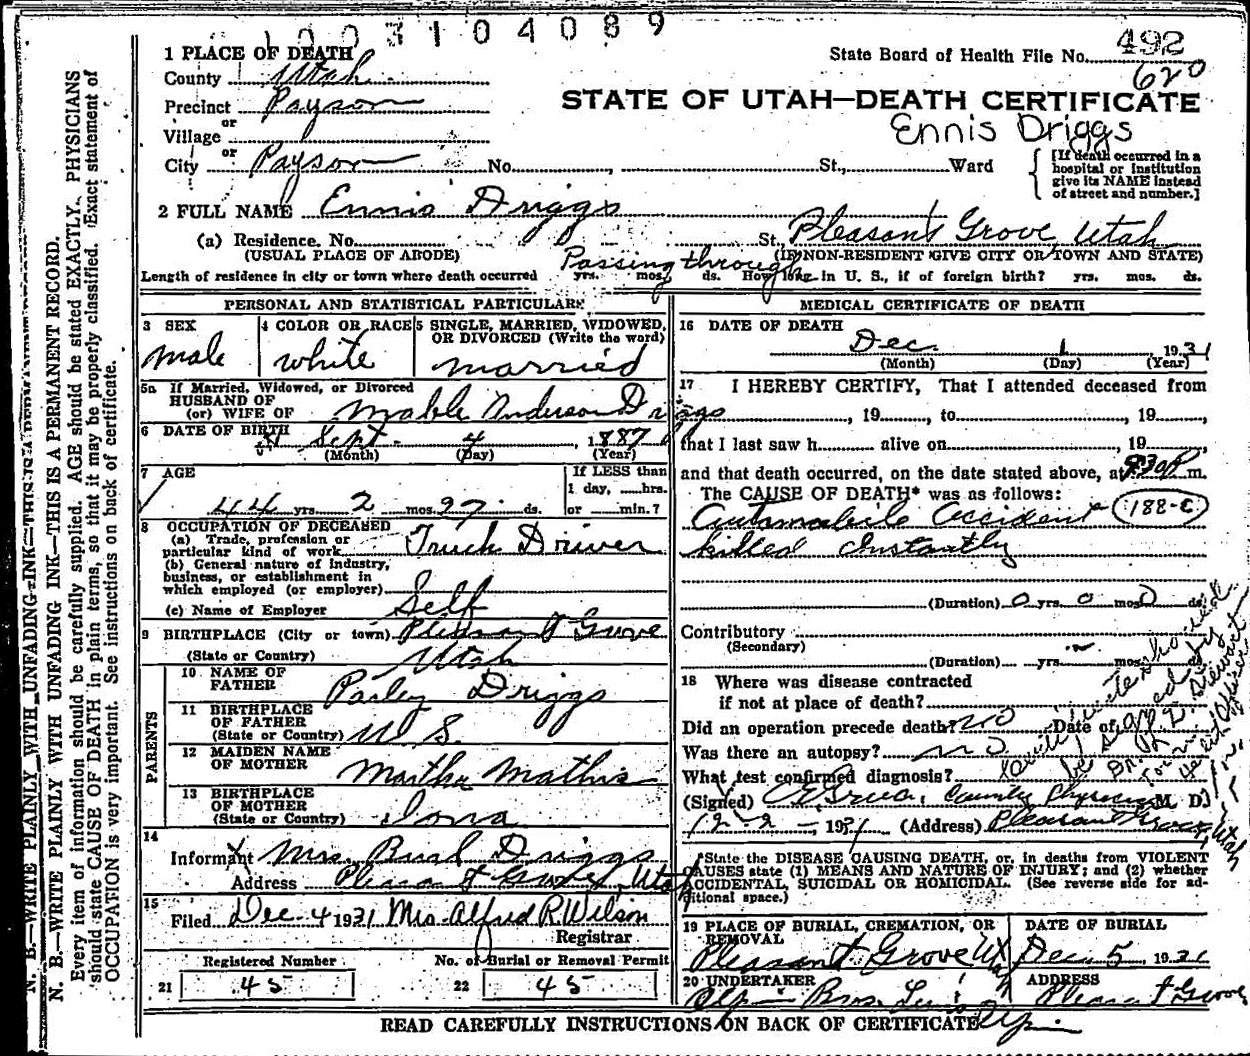 1003104089
1 PLACE OF DEATH
State Board of Health File No. 492
620
County Utah
Precinct Payson
or
Village
or
City Payson No. , St., Ward
STATE OF UTAH—DEATH CERTIFICATE
Ennis Driggs
[If death occurred in a hospital or institution give its NAME instead of street and number.]
2 FULL NAME Ennis Driggs
(a) Residence. No. St. Pleasant Grove, Utah
(USUAL PLACE OF ABODE) (IF NON-RESIDENT GIVE CITY OR TOWN AND STATE)
Passing through
Length of residence in city or town where death occurred yrs. mos. ds. How long in U. S., if of foreign birth? yrs. mos. ds.
PERSONAL AND STATISTICAL PARTICULARS
3 SEX
male
4 COLOR OR RACE
white
5 SINGLE, MARRIED, WIDOWED, OR DIVORCED (Write the word)
married
5a If Married, Widowed, or Divorced
HUSBAND OF
(or) WIFE OF Mable Anderson Driggs
6 DATE OF BIRTH Sept. 4, 1887
(Month) (Day) (Year)
7 AGE
44 yrs. 2 mos. 27 ds.
If LESS than
1 day, hrs.
or min.?
8 OCCUPATION OF DECEASED
(a) Trade, profession or
particular kind of work Truck Driver
(b) General nature of industry,
business, or establishment in
which employed (or employer)
(c) Name of Employer Self
9 BIRTHPLACE (City or town) Pleasant Grove
(State or Country) Utah
PARENTS
10 NAME OF
FATHER Parley Driggs
11 BIRTHPLACE
OF FATHER
(State or Country) U S.
12 MAIDEN NAME
OF MOTHER Martha Mathis
13 BIRTHPLACE
OF MOTHER
(State or Country) Iona
14
Informant Mrs. Bual Driggs
Address Pleasant Grove, Utah
15
Filed Dec. 4 1931 Mrs. Alfred R. Wilson
Registrar
Registered Number No. of Burial or Removal Permit
21 45 22 45
MEDICAL CERTIFICATE OF DEATH
16 DATE OF DEATH
Dec. 1 1931
(Month) (Day) (Year)
17 I HEREBY CERTIFY, That I attended deceased from
, 19 , to , 19 ,
that I last saw h alive on , 19 ,
and that death occurred, on the date stated above, at 9:30 P m.
The CAUSE OF DEATH* was as follows:
Automobile Accident 188-C
killed Instantly
(Duration) 0 yrs. 0 mos. 0 ds.
Contributory
(Secondary)
(Duration) yrs. mos. ds.
18 Where was disease contracted
if not at place of death?
Did an operation precede death? no Date of
Was there an autopsy? no
What test confirmed diagnosis?
(Signed) County Physician M. D.
12-2-, 1931 (Address) Pleasant Grove, Utah
be signed by
*State the DISEASE CAUSING DEATH, or, in deaths from VIOLENT
CAUSES state (1) MEANS AND NATURE OF INJURY; and (2) whether
ACCIDENTAL, SUICIDAL OR HOMICIDAL. (See reverse side for ad-
ditional space.)
19 PLACE OF BURIAL, CREMATION, OR
REMOVAL
Pleasant Grove Utah
DATE OF BURIAL
Dec 5, 1931
20 UNDERTAKER
Bros.
ADDRESS
Pleasant Grove
READ CAREFULLY INSTRUCTIONS ON BACK OF CERTIFICATE
N. B.—WRITE PLAINLY WITH UNFADING INK—THIS IS A PERMANENT RECORD.
N. B.—WRITE PLAINLY WITH UNFADING INK—THIS IS A PERMANENT RECORD.
Every item of information should be carefully supplied. AGE should be stated EXACTLY. PHYSICIANS
should state CAUSE OF DEATH in plain terms, so that it may be properly classified. Exact statement of
OCCUPATION is very important. See instructions on back of certificate.